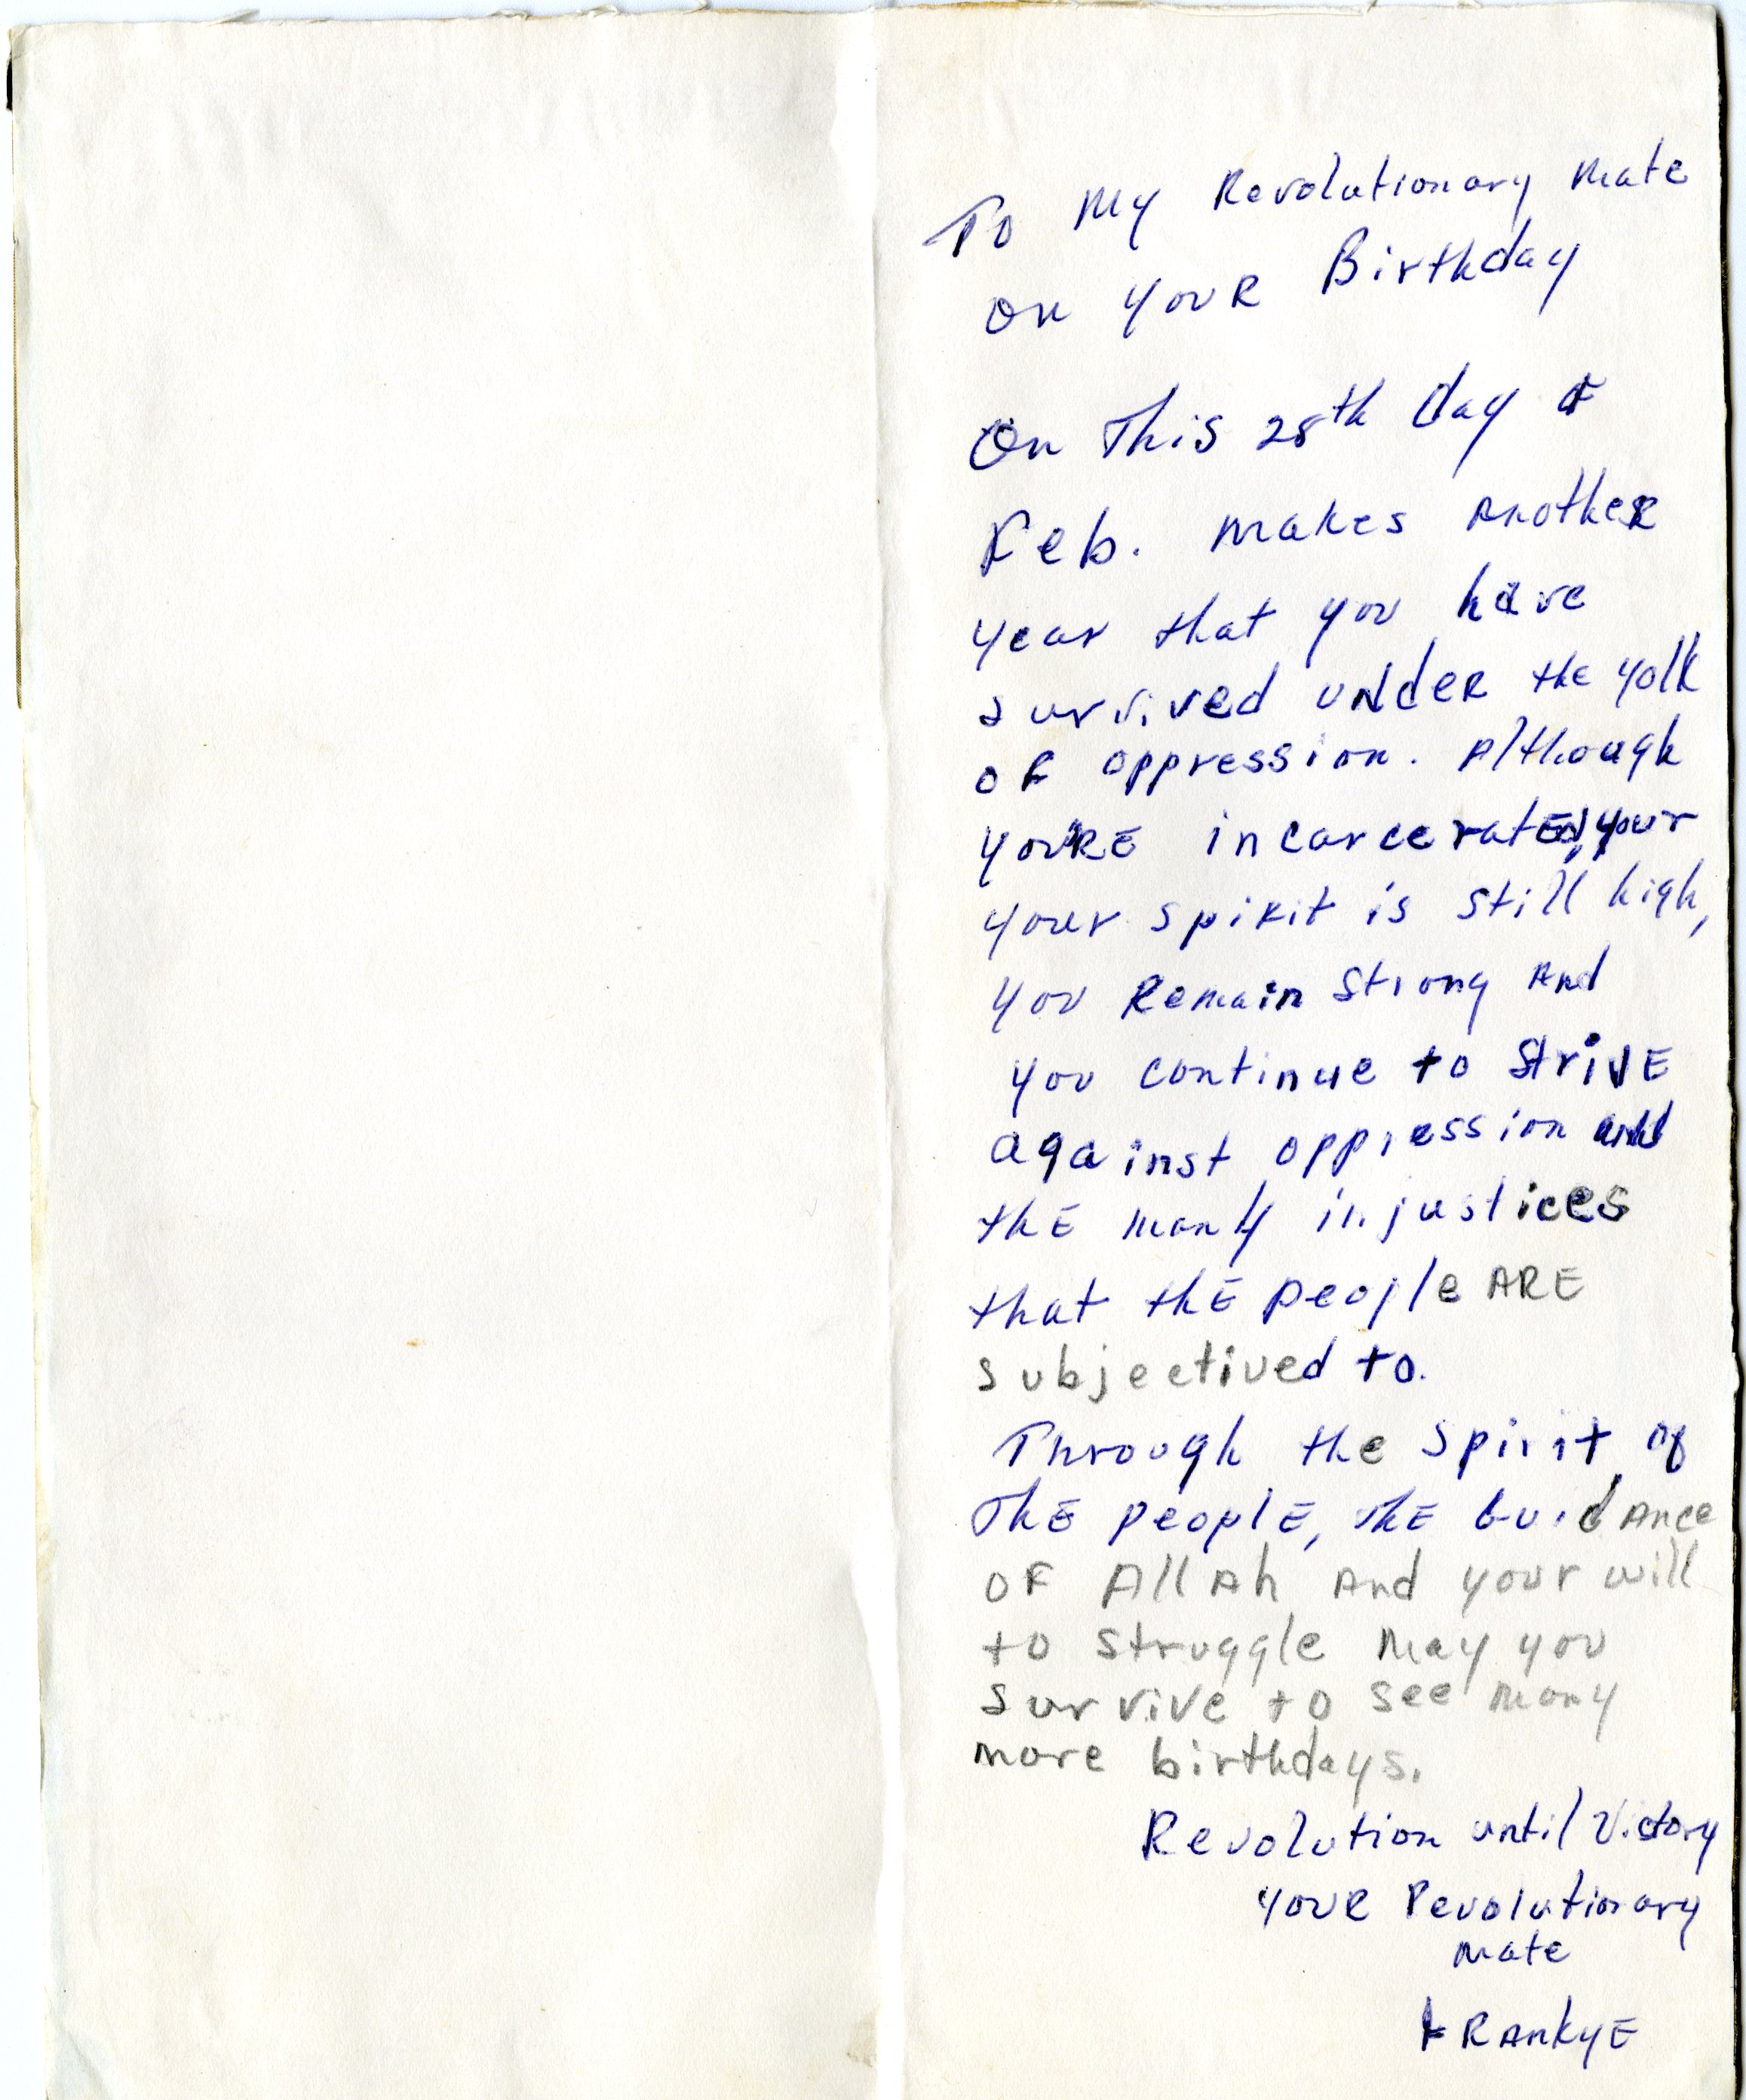 To My Revolutionary Mate
on YouR Birthday
On This 28th Day of
Feb. makes Another
year that you have
survived UNdeR the yolk
of oppression. Although
you'RE incarceratEd, your
your spiRit is still high,
you Remain Strong And
you continue to StrivE
against oppression and
thE many injustices
that thE people ARE
subjectived to.
Through the spirit of
ThE peoplE, thE GuidAnce
OF AllAh And your will
to struggle may you
survive to see many
more birthdays.
Revolution until Victory
youR Revolutionary
mate
FRAnkyE